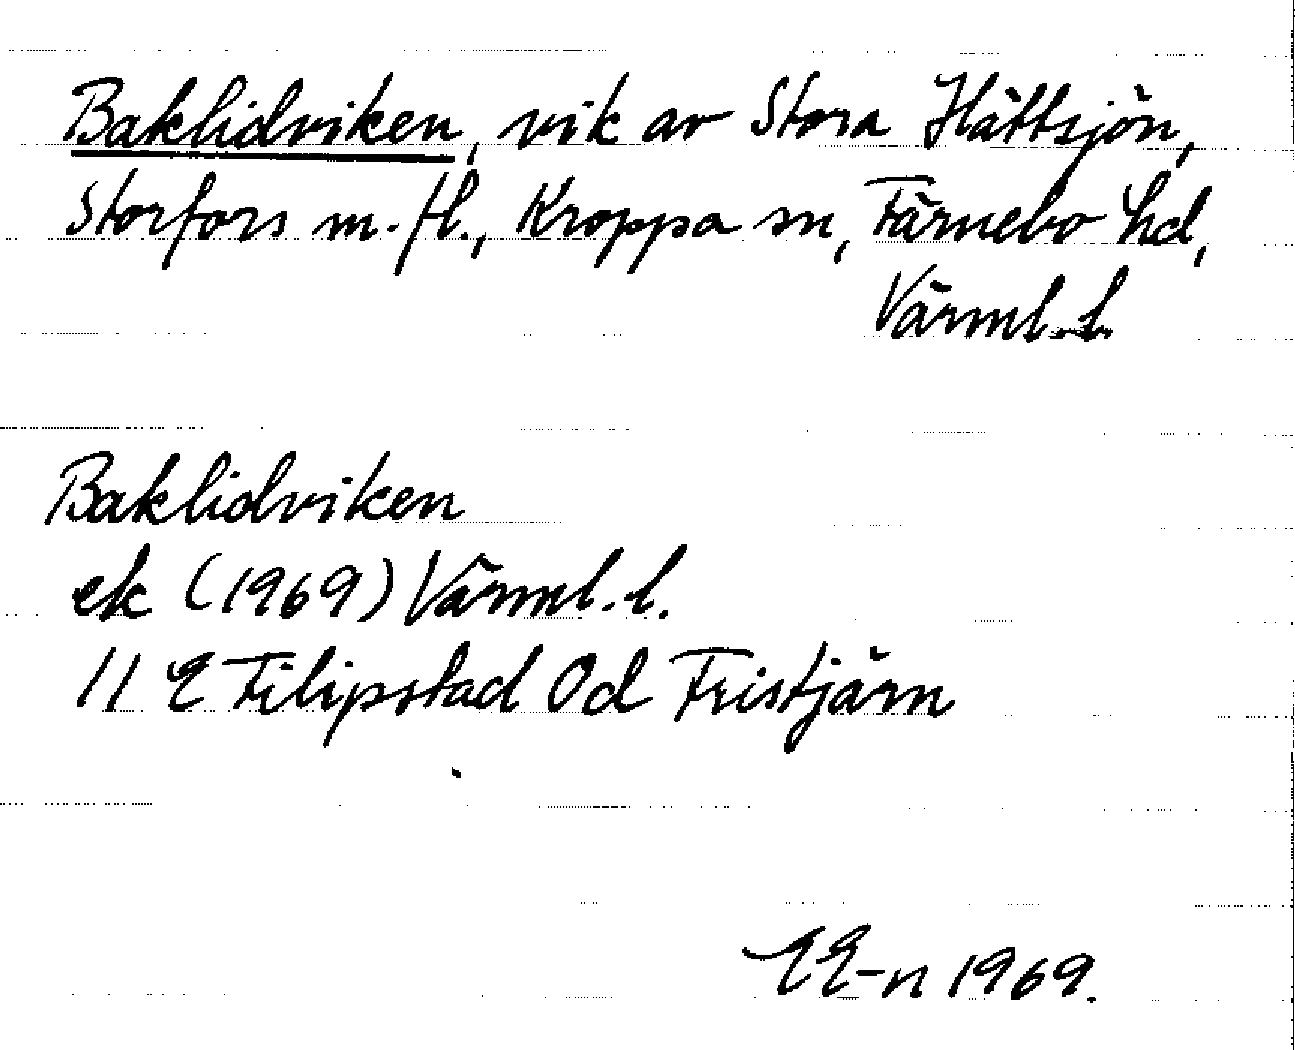 Baklidviken, vik av Stora Hättsjön,
Storfors m.fl., Kroppa sn, Färnebo hd,
Värml. l.
Baklidviken
ek (1969) Värml. l.
11 E Filipstad 0d Fristjärn
EE-n 1969.